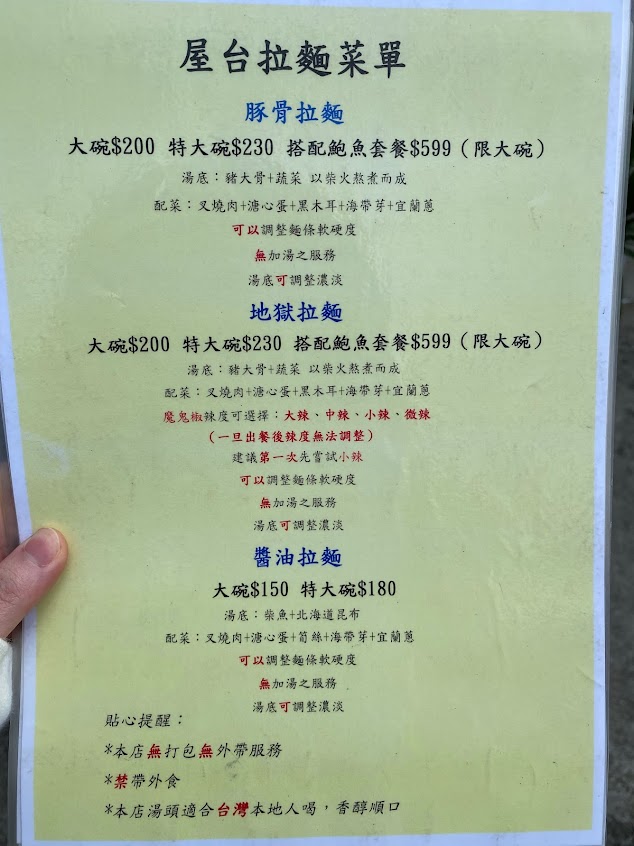 屋台拉麵菜單
豚骨拉麵
大碗$200 特大碗$230 搭配鮑魚套餐$599（限大碗）
湯底：豬大骨+蔬菜 以柴火熬煮而成
配菜：叉燒肉+溏心蛋+黑木耳+海帶芽+宜蘭蔥
可以調整麵條軟硬度
無加湯之服務
湯底可調整濃淡
地獄拉麵
大碗$200 特大碗$230 搭配鮑魚套餐$599（限大碗）
湯底：豬大骨+蔬菜 以柴火熬煮而成
配菜：叉燒肉+溏心蛋+黑木耳+海帶芽+宜蘭蔥
魔鬼椒辣度可選擇：大辣、中辣、小辣、微辣
（一旦出餐後辣度無法調整）
建議第一次先嘗試小辣
可以調整麵條軟硬度
無加湯之服務
湯底可調整濃淡
醬油拉麵
大碗$150 特大碗$180
湯底：柴魚+北海道昆布
配菜：叉燒肉+溏心蛋+筍絲+海帶芽+宜蘭蔥
可以調整麵條軟硬度
無加湯之服務
湯底可調整濃淡
貼心提醒：
*本店無打包無外帶服務
*禁帶外食
*本店湯頭適合台灣本地人喝，香醇順口